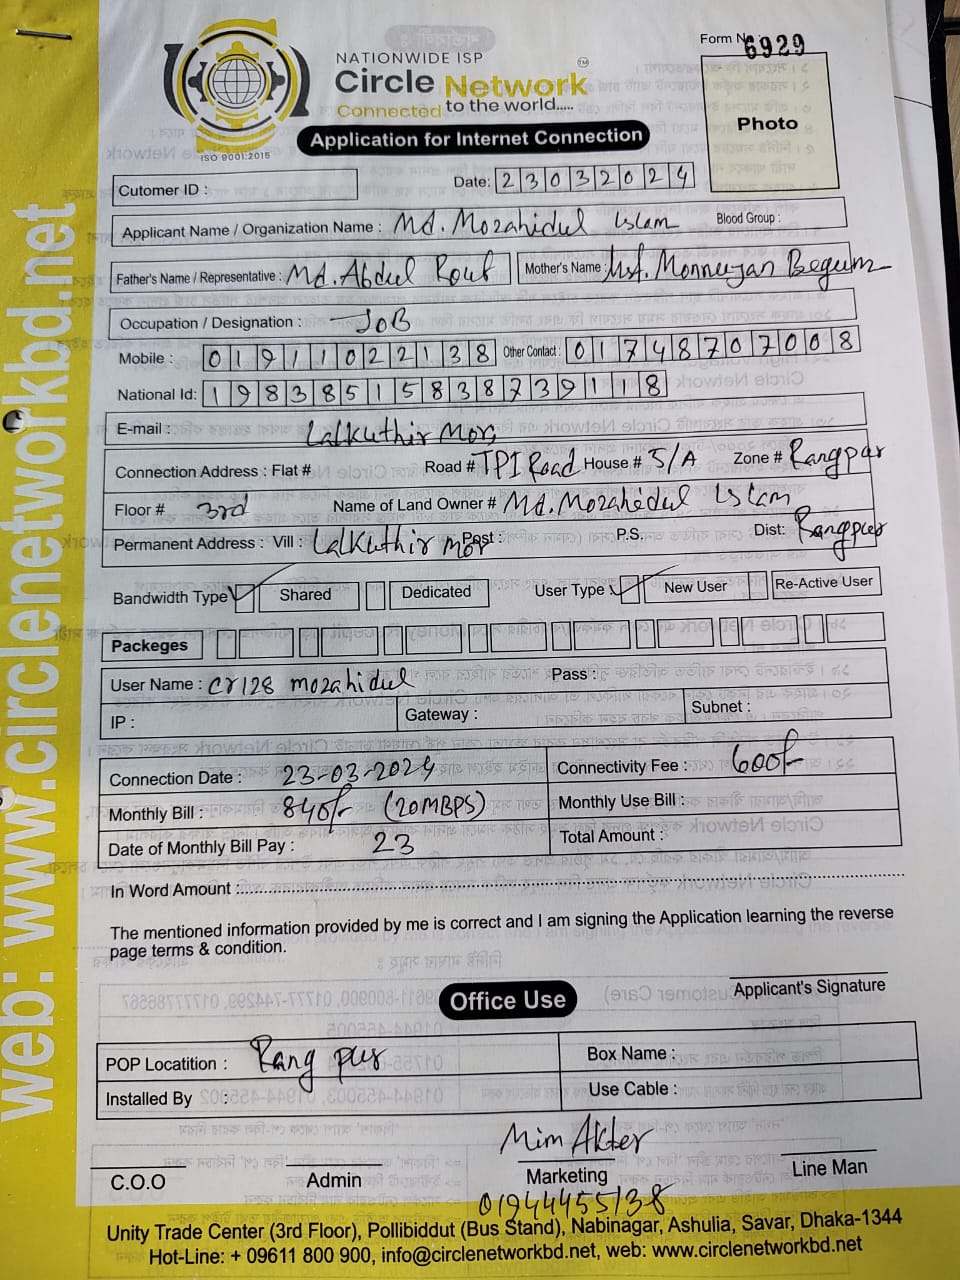 Form No. 6929
NATIONWIDE ISP
Circle Network TM
Connected to the world.....
ISO 9001:2015
Application for Internet Connection
Photo
Cutomer ID :
Date: 23032024
Applicant Name / Organization Name : Md. Mozahidul Islam Blood Group :
Father's Name / Representative : Md. Abdul Rouf Mother's Name : Mst. Monnujan Begum
Occupation / Designation : JOB
Mobile : 01911022138 Other Contact : 01748707008
National Id: 19838515838739118
E-mail :
Lalkuthir Mor,
Connection Address : Flat # Road # TPI Road House # 5/A Zone # Rangpur
Floor # 3rd Name of Land Owner # Md. Mozahidul Islam
Permanent Address : Vill : Lalkuthir mor Post : P.S. Dist: Rangpur
Bandwidth Type Shared Dedicated User Type New User Re-Active User
Packeges
User Name : Cr128 mozahidul Pass :
IP : Gateway : Subnet :
Connection Date : 23-03-2024 Connectivity Fee : 600/-
Monthly Bill : 840/- (20MBPS) Monthly Use Bill :
Date of Monthly Bill Pay : 23 Total Amount :
In Word Amount :
The mentioned information provided by me is correct and I am signing the Application learning the reverse
page terms & condition.
Applicant's Signature
Office Use
POP Locatition : Rangpur Box Name :
Installed By : Use Cable :
Mim Akter
C.O.O Admin Marketing Line Man
01944455138
Unity Trade Center (3rd Floor), Pollibiddut (Bus Stand), Nabinagar, Ashulia, Savar, Dhaka-1344
Hot-Line: + 09611 800 900, info@circlenetworkbd.net, web: www.circlenetworkbd.net
web: www.circlenetworkbd.net